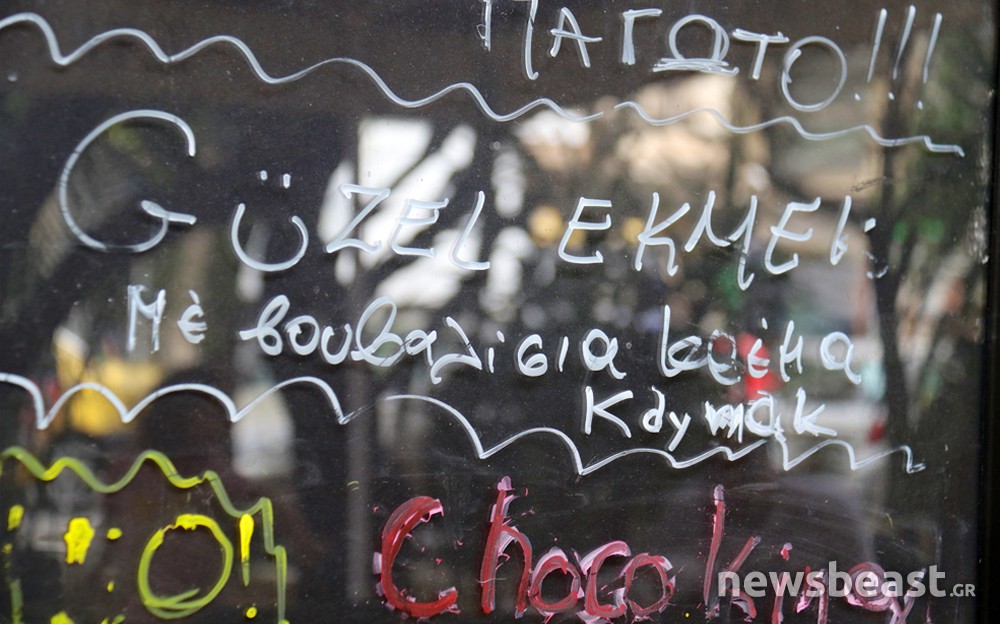 ΠΑΓΩΤΟ!!!
GÜZEL EKMEK:
Με βουβαλίσια κρέμα
Kaymak
Choco king
newsbeast.GR